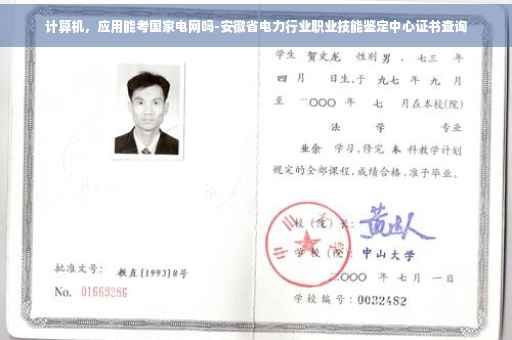 计算机，应用能考国家电网吗-安徽省电力行业职业技能鉴定中心证书查询
学生 贺文龙 性别 男，七三 年
四 月 日生，于 九七 年 九 月
至 二〇〇〇 年 七 月在本校(院)
法 学 专业
业余 学习，修完 本 科教学计划
规定的全部课程，成绩合格，准予毕业。
校（院）长：
学 校（院）：中山大学
二〇〇〇 年 七 月 一 日
学校编号：0032482
批准文号： 教直[1993]8号
No. 01669286